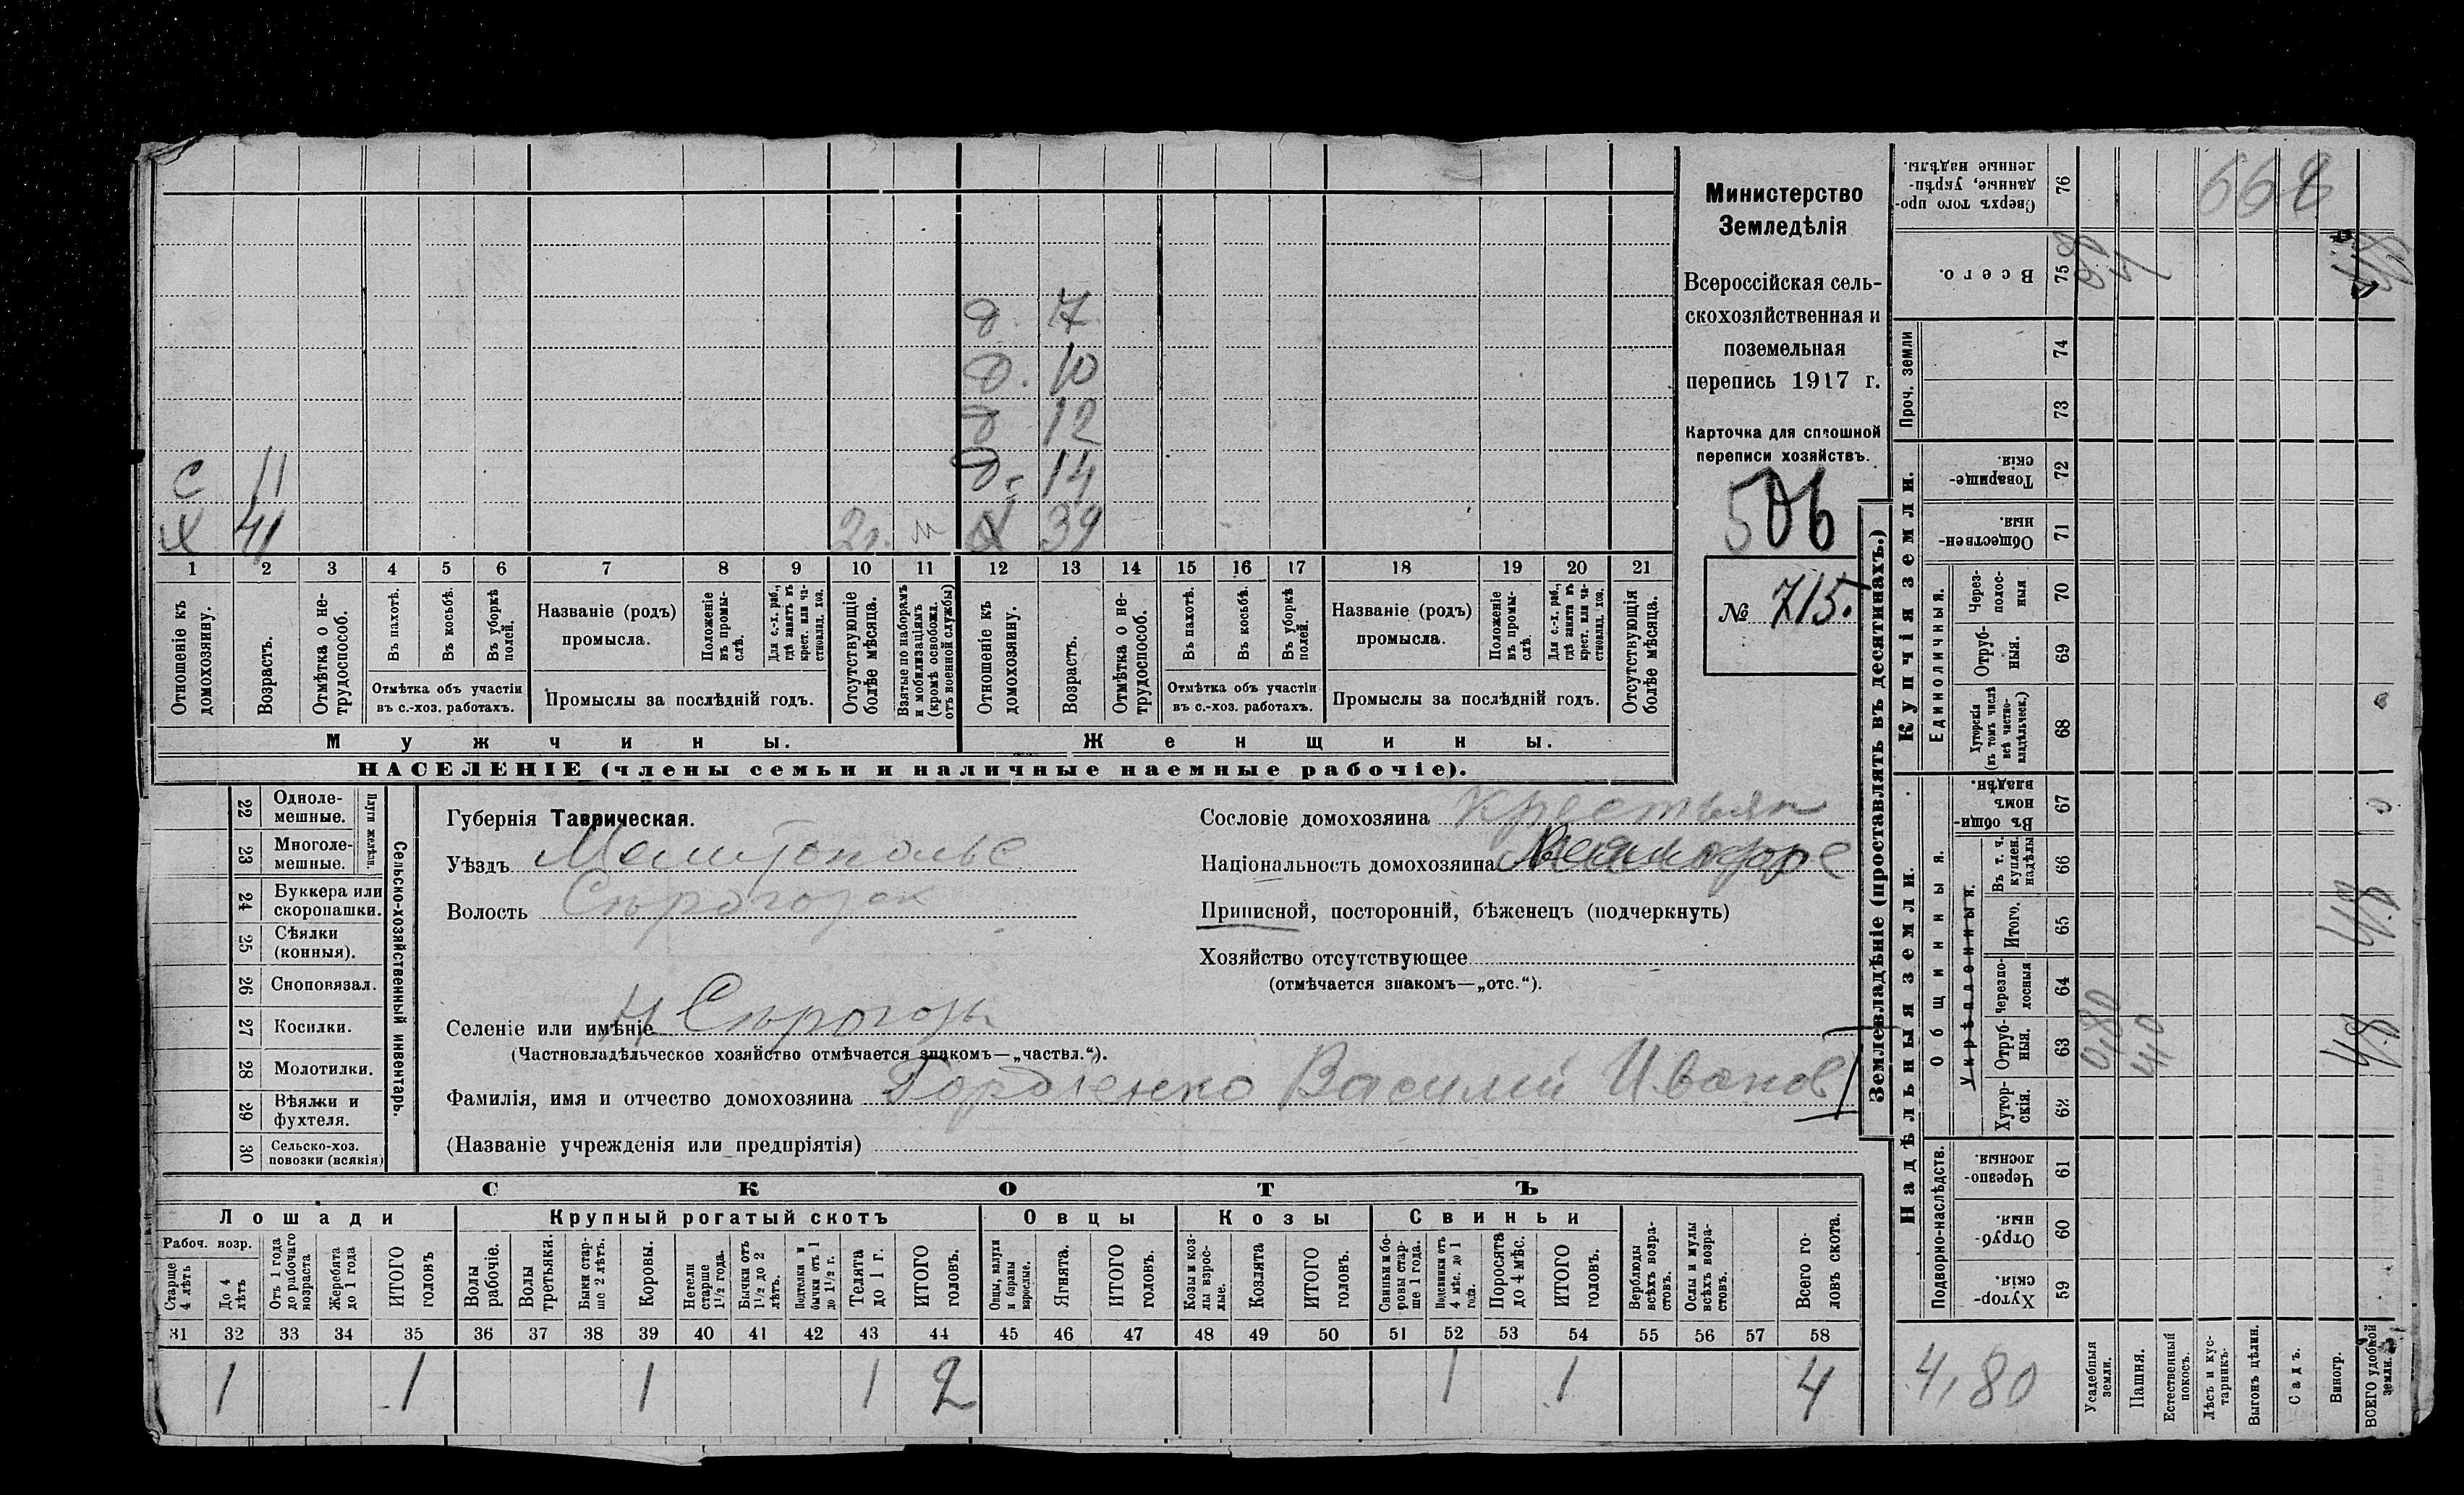 д. 7
д. 10
д 12
с 11 д. 14
х 41 2г. м х 39
1 2 3 4 5 6 7 8 9 10 11 12 13 14 15 16 17 18 19 20 21
Отношеніе къ домохозяину.
Возрастъ.
Отмѣтка о не-
трудоспособ.
Въ пахотѣ.
Въ косьбѣ.
Въ уборкѣ
полей.
Отмѣтка объ участіи
въ с.-хоз. работахъ.
Названіе (родъ)
промысла.
Положеніе
въ промы-
слѣ.
Для с.-х. раб.,
гдѣ занятъ въ
крест. или ча-
стновлад. хоз.
Промыслы за послѣдній годъ.
Отсутствующіе
болѣе мѣсяца.
Взятые по наборамъ
и мобилизаціямъ
(кромѣ освобожд.
отъ военной службы)
Отношеніе къ
домохозяину.
Возрастъ.
Отмѣтка о не-
трудоспособ.
Въ пахотѣ.
Въ косьбѣ.
Въ уборкѣ
полей.
Отмѣтка объ участіи
въ с.-хоз. работахъ.
Названіе (родъ)
промысла.
Положеніе
въ промы-
слѣ.
Для с.-х. раб.,
гдѣ занята въ
крест. или ча-
стновлад. хоз.
Промыслы за послѣдній годъ.
Отсутствующія
болѣе мѣсяца.
Мужчины.
Женщины.
НАСЕЛЕНІЕ (члены семьи и наличные наемные рабочіе).
Министерство
Земледѣлія
Всероссійская сель-
скохозяйственная и
поземельная
перепись 1917 г.
Карточка для сплошной
переписи хозяйствъ.
506
№ 715.
22 Одноле-
мешные.
23 Многоле-
мешные.
Плуги желѣзн.
24 Буккера или
скоропашки.
25 Сѣялки
(конныя).
26 Сноповязал.
27 Косилки.
28 Молотилки.
29 Вѣялки и
фухтеля.
30 Сельско-хоз.
повозки (всякія)
Сельско-хозяйственный инвентарь.
Губернія Таврическая.
Уѣздъ Мелитополье
Волость Сѣрогозск
Селеніе или имѣніе Н Сѣрогозы
(Частновладѣльческое хозяйство отмѣчается знакомъ—„частвл.“).
Фамилія, имя и отчество домохозяина Гордіенко Василій Иванов
(Названіе учрежденія или предпріятія)
Сословіе домохозяина Крестьян
Національность домохозяина
Приписной, посторонній, бѣженецъ (подчеркнуть)
Хозяйство отсутствующее
(отмѣчается знакомъ—„отс.“).
СКОТЪ
Лошади
Крупный рогатый скотъ
Овцы
Козы
Свиньи
Рабоч. возр.
Старше
4 лѣтъ
До 4
лѣтъ
Отъ 1 года
до рабочаго
возраста
Жеребята
до 1 года
ИТОГО
головъ
Волы
рабочіе.
Волы
третьяки.
Быки стар-
ше 2 лѣтъ.
Коровы.
Нетели
старше
1½ года.
Бычки отъ
1½ до 2
лѣтъ.
Подтелки и
бычки отъ 1
до 1½ г.
Телята
до 1 г.
ИТОГО
головъ.
Овцы, валухи
и бараны
взрослые.
Ягнята.
ИТОГО
головъ.
Козы и коз-
лы взрос-
лые.
Козлята
ИТОГО
головъ.
Свиньи и бо-
ровы стар-
ше 1 года.
Подсвинки отъ
4 мѣс. до 1
года.
Поросята
до 4 мѣс.
ИТОГО
головъ.
Верблюды
всѣхъ возра-
стовъ.
Ослы и мулы
всѣхъ возра-
стовъ.
Всего го-
ловъ скота.
31 32 33 34 35 36 37 38 39 40 41 42 43 44 45 46 47 48 49 50 51 52 53 54 55 56 57 58
1 1 1 1 2 1 1 4
Землевладѣніе (проставлять въ десятинахъ.)
Надѣльныя земли.
Купчія земли.
Проч. земли
Сверхъ того про-
данные, укрѣп-
ленные надѣлы.
76
668
Всего.
75
74
73
Товарище-
скія.
72
Обществен-
ныя.
71
Единоличныя.
Через-
полос-
ныя
70
Отруб-
ныя.
69
Хуторскія
(въ томъ числѣ
всѣ частно-
владѣльческ.)
68
Въ общи-
номъ
владѣн.
67
Общинныя.
Укрѣпленныя.
Въ т. ч.
куплен.
надѣлы
66
Итого.
65
4,8
Черезпо-
лосныя
64
Отруб-
ныя.
63
0,80
4,0
4,8
Хутор-
скія.
62
Подворно-наслѣдств.
Черезпо-
лосныя.
61
Отруб-
ныя.
60
Хутор-
скія.
59
4,80
Усадебныя
земли.
Пашня.
Естественный
покосъ.
Лѣсъ и кус-
тарникъ.
Выгонъ цѣлин.
Садъ.
Виногр.
ВСЕГО удобной
земли.